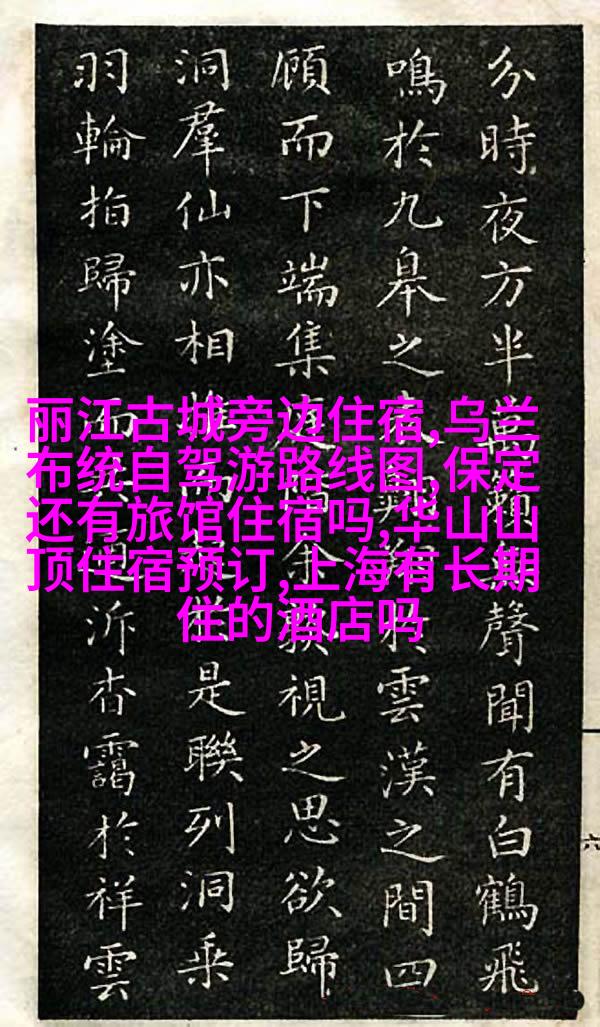 丽江古城旁边住宿,乌兰
布统自驾游路线图,保定
还有旅馆住宿吗,华山山
顶住宿预订,上海有长期
住的酒店吗
分時夜方半萬籟聲聞有白鶴飛
鳴於九皋之於雲漢之間四
顧而下端集余視之思欲歸
洞羣仙亦相而是聯列洞乗
羽輪拍歸塗而泝杳靄於祥雲
六